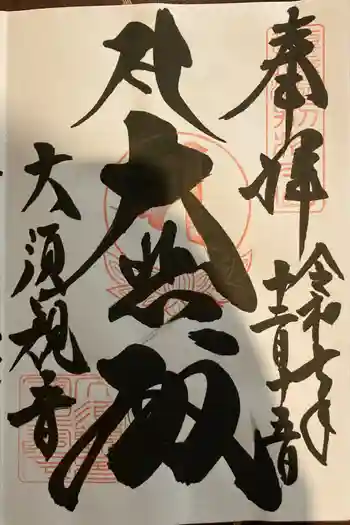 奉拝
令和七年
十二月十五日
大悲殿
大須観音